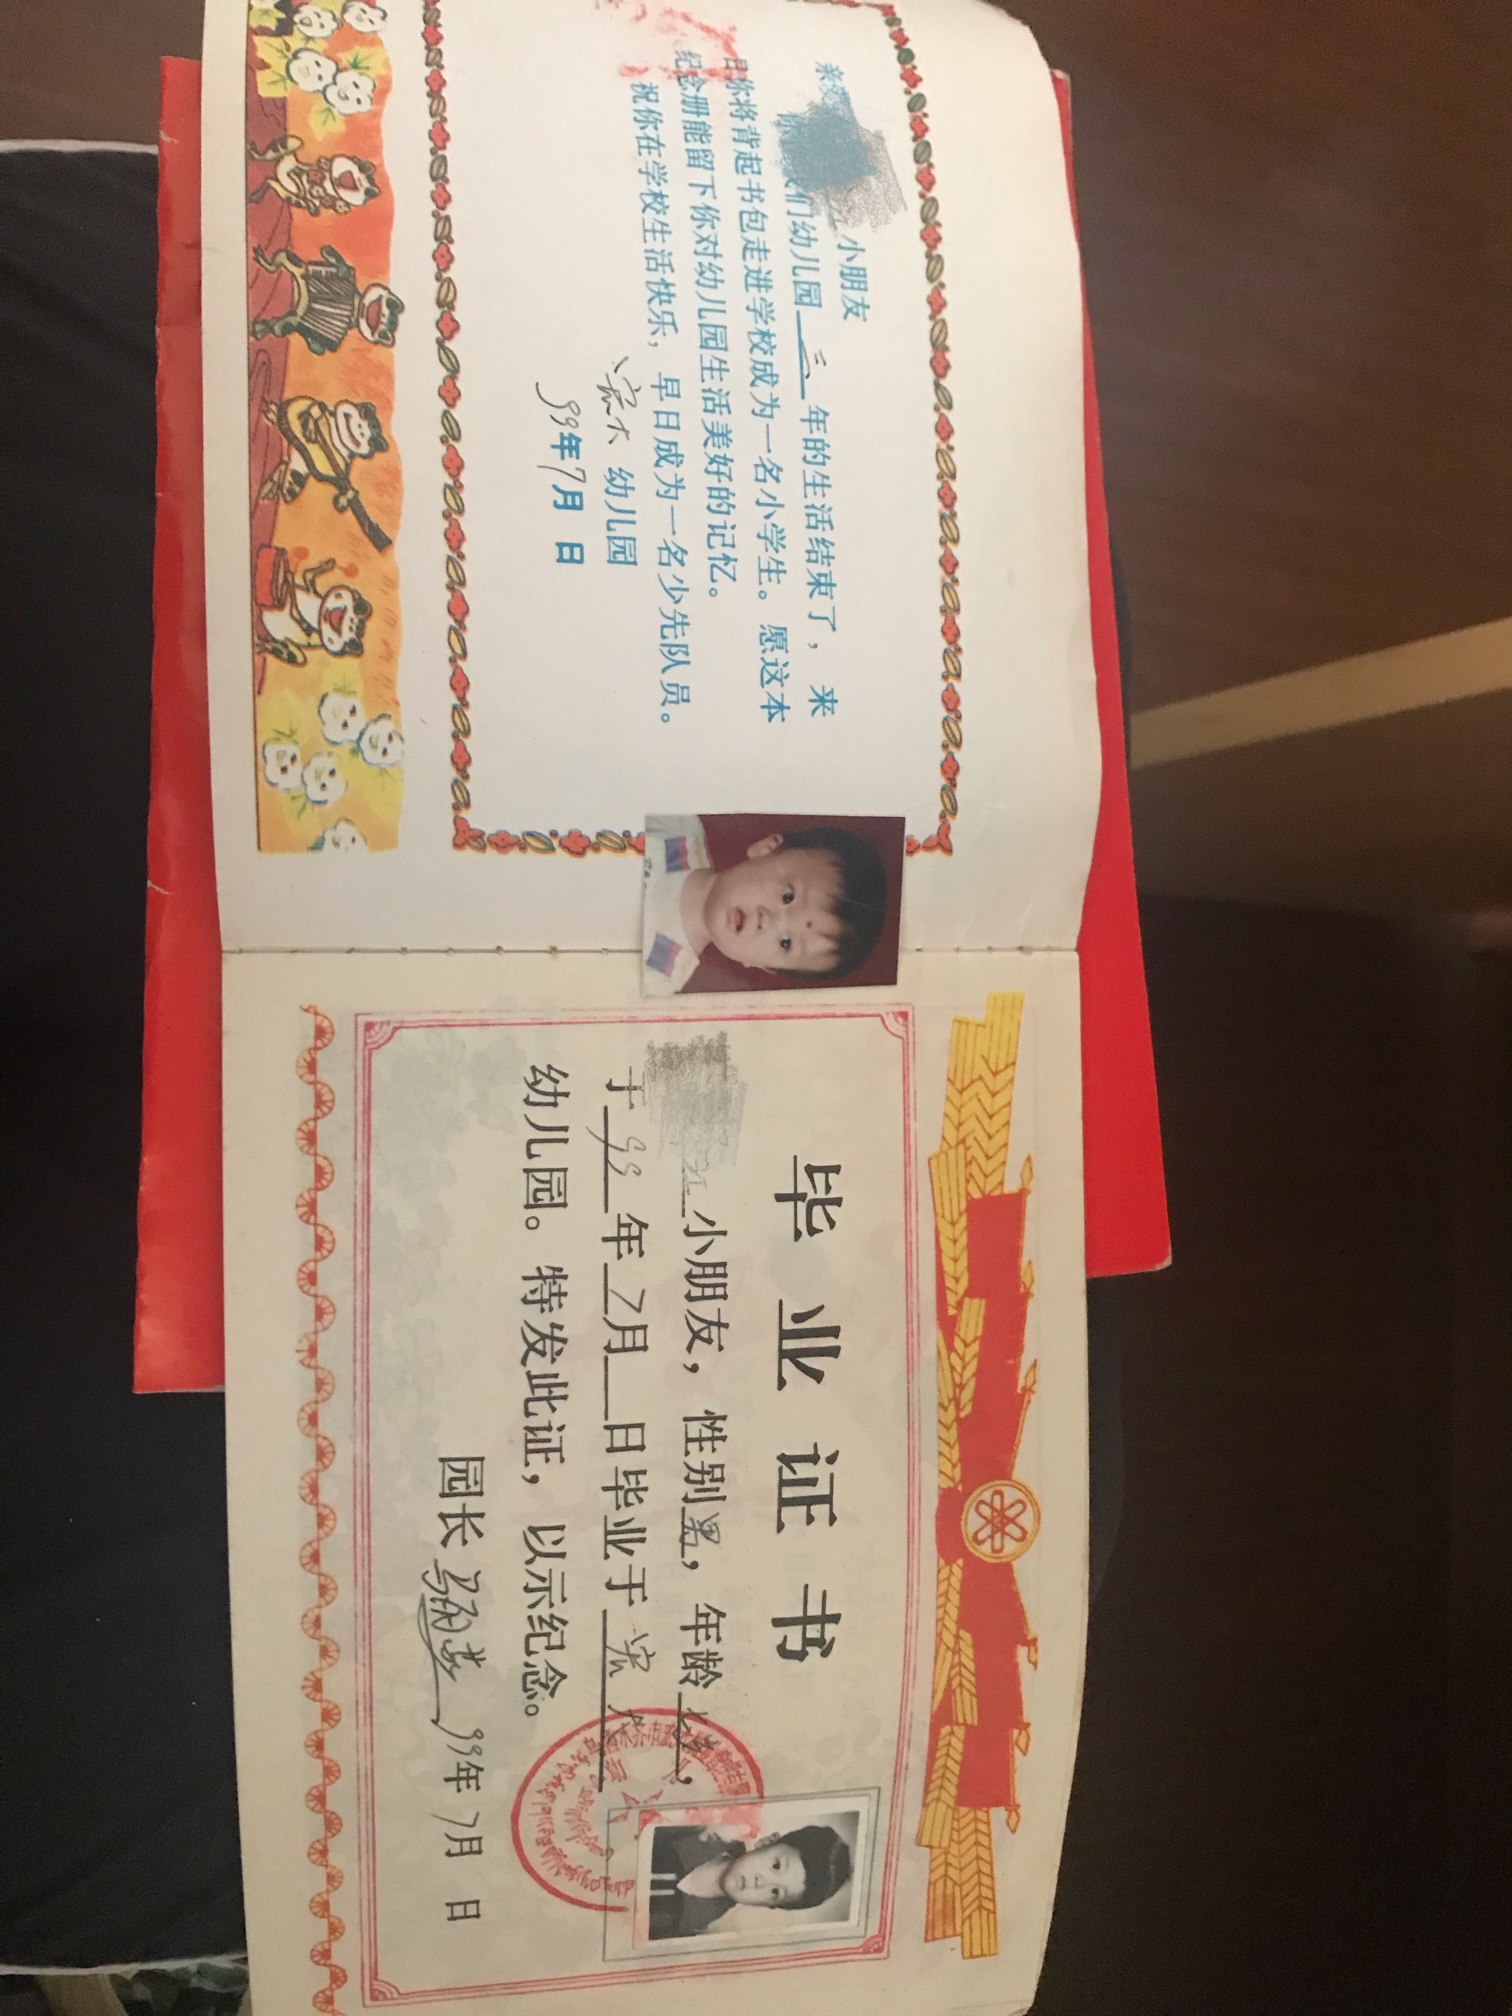 亲爱 小朋友
你 我们幼儿园三年的生活结束了，来
日你将背起书包走进学校成为一名小学生。愿这本
纪念册能留下你对幼儿园生活美好的记忆。
祝你在学校生活快乐，早日成为一名少先队员。
幼儿园
99年7月 日
毕业证书
小朋友，性别男，年龄 ，
于99年7月 日毕业于
幼儿园。特发此证，以示纪念。
园长 99年7月 日